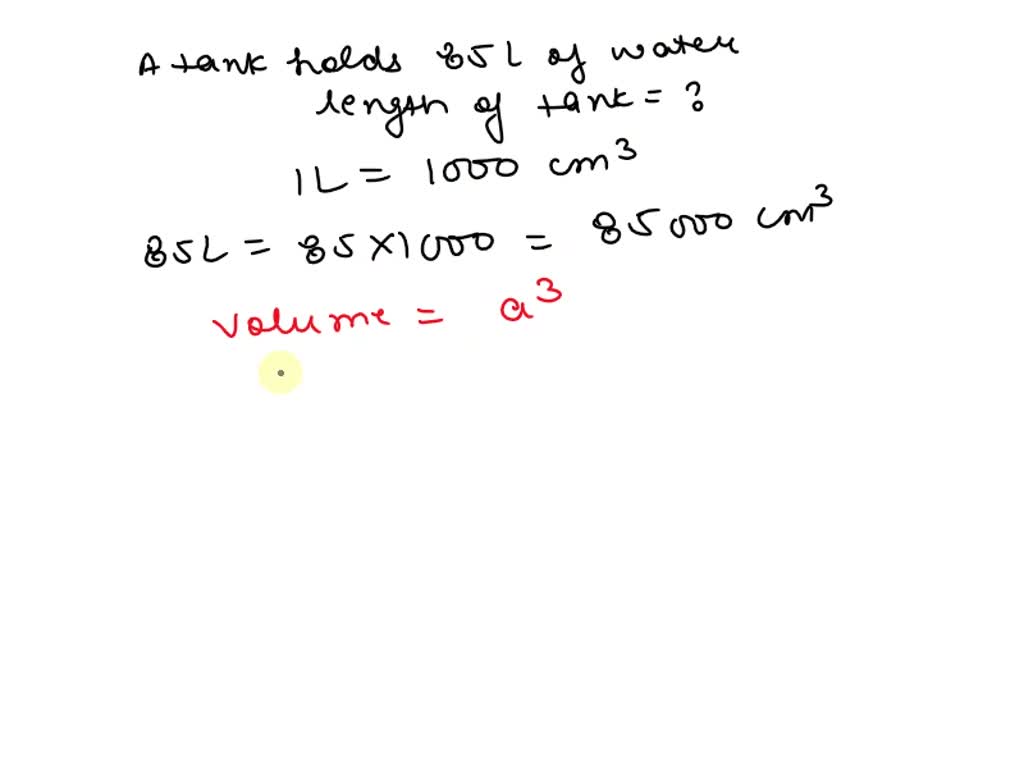 A tank holds 85L of water
length of tank = ?
1L = 1000 cm³
85L = 85×1000 = 85000 cm³
volume = a³